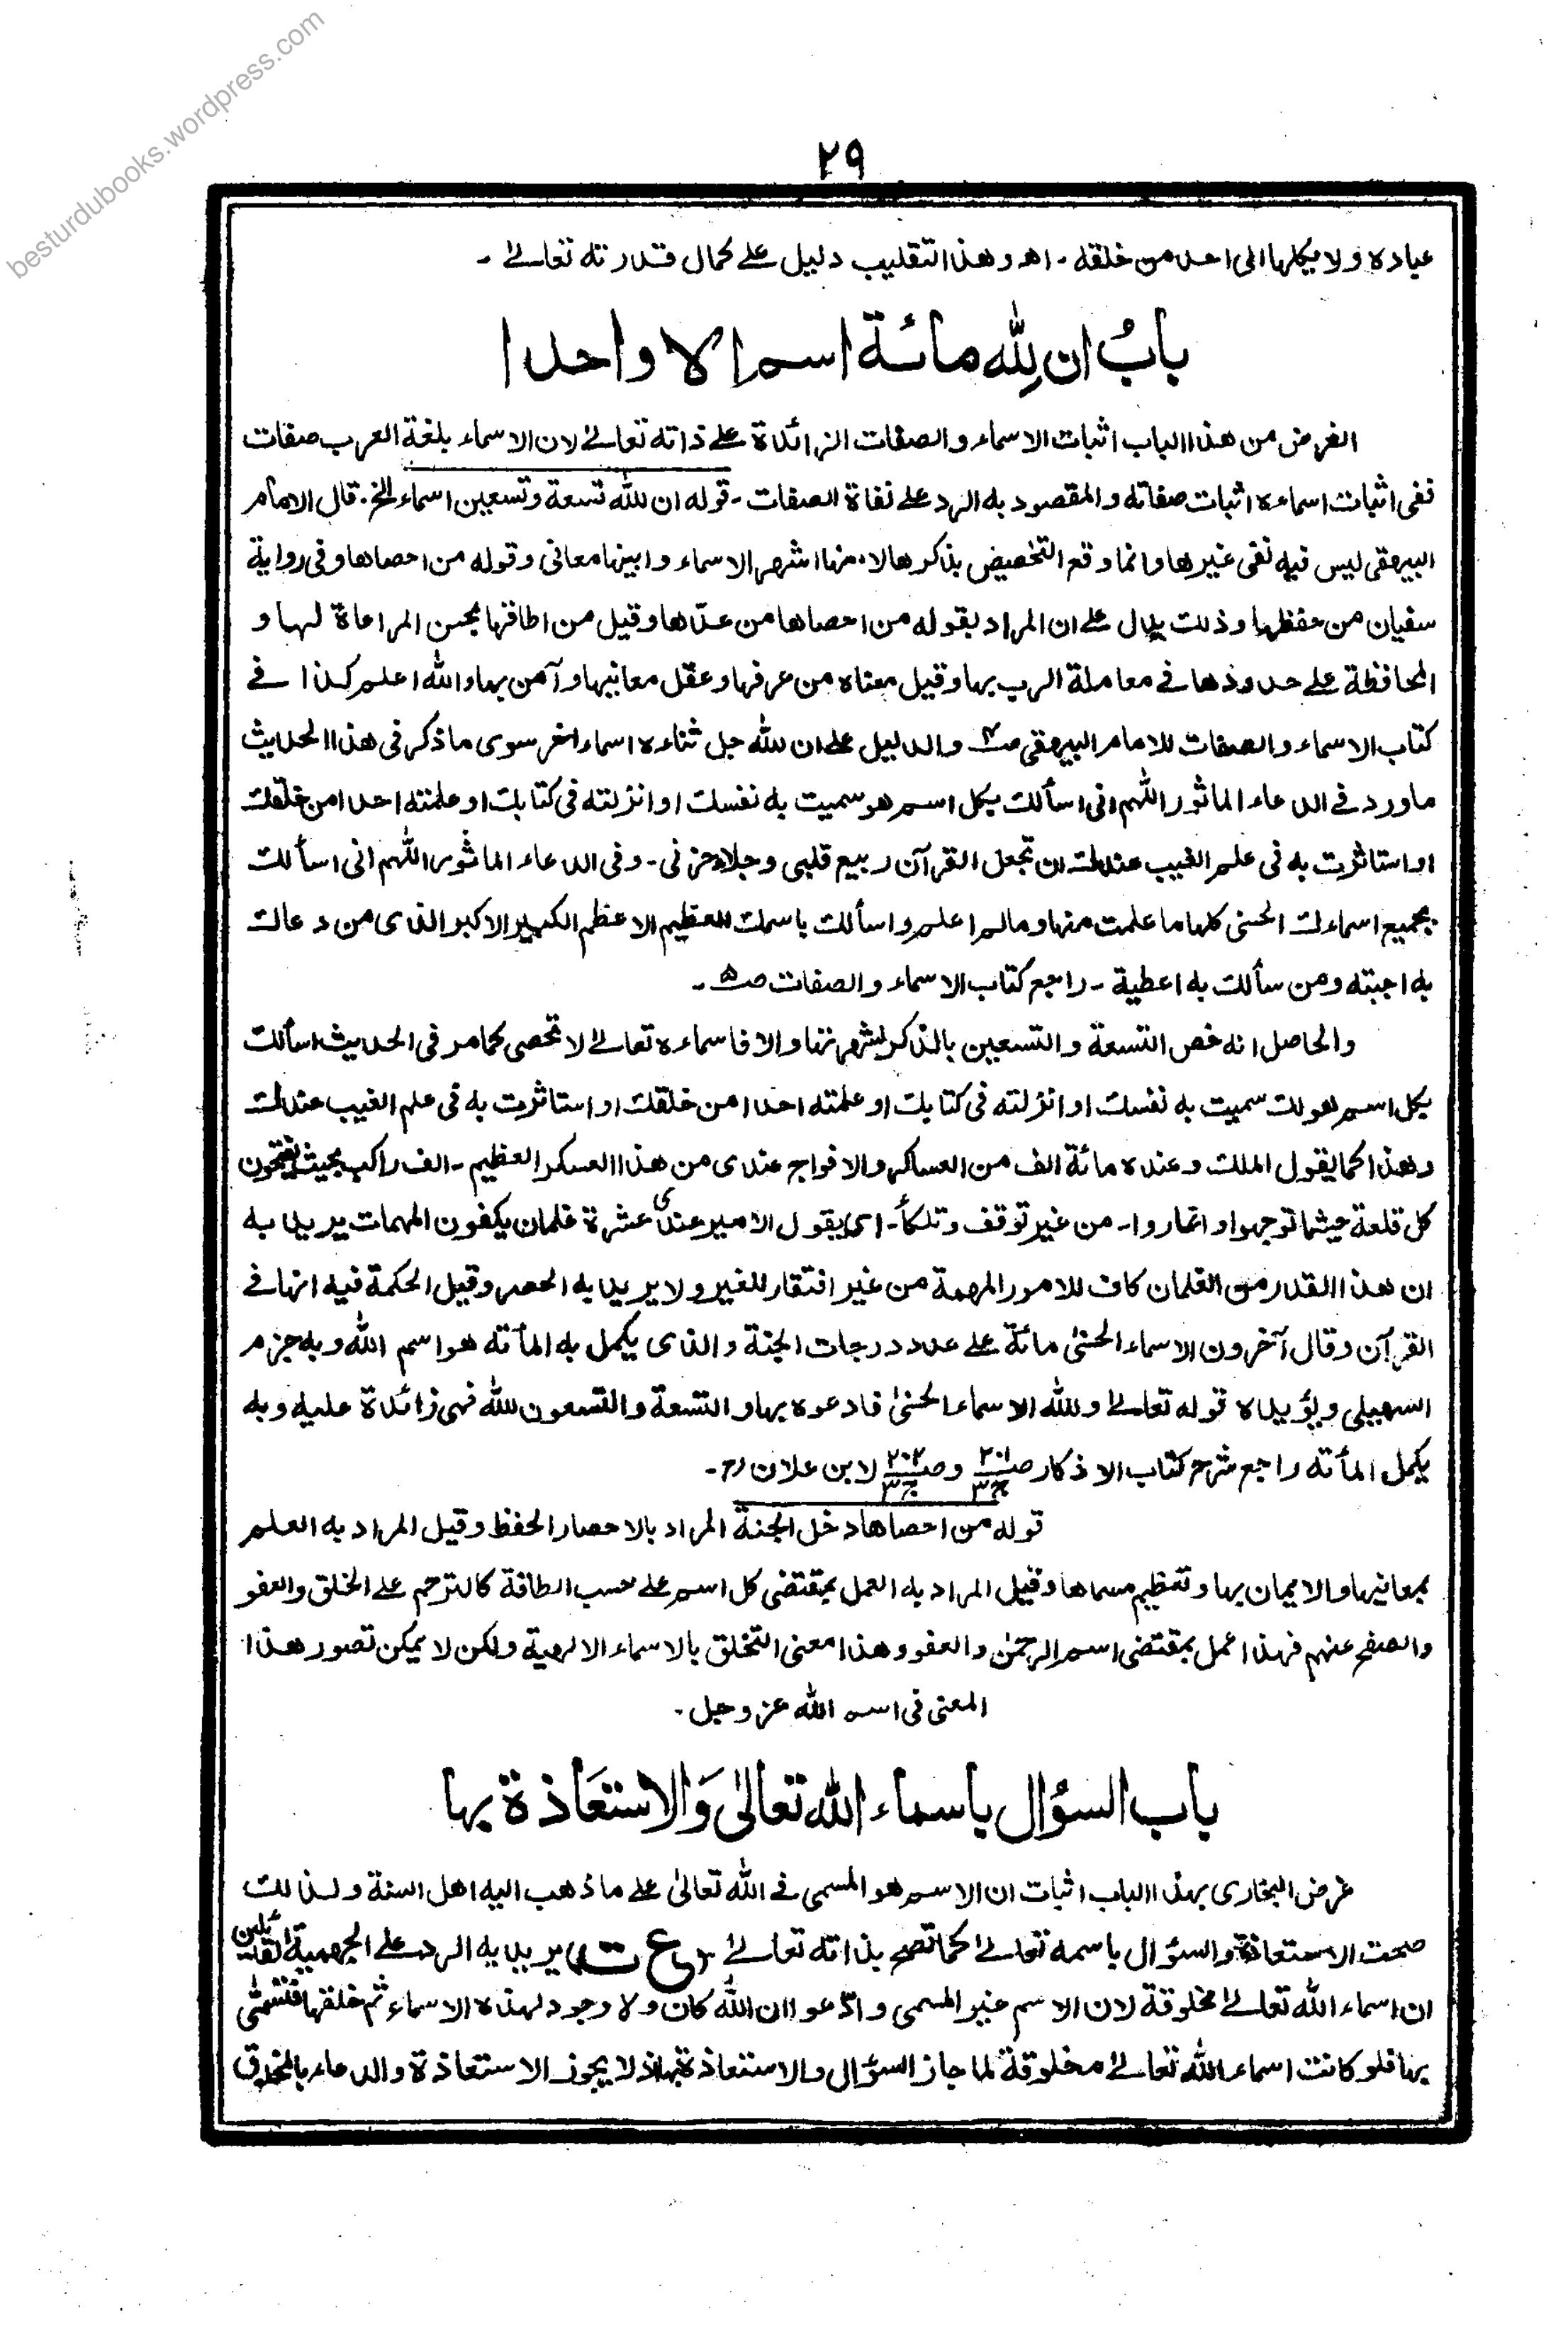 besturdubooks.wordpress.com
٢٩
عباده ولا يكلها الى احد من خلقه ۔ اهـ وهذا التقليب دليل علے كمال قدرته تعالے ۔
بابُ ان لِلّٰه مائة اسم الا واحدا
الغرض من هذا الباب اثبات الاسماء والصفات الزائدة علے ذاته تعالےٰ لان الاسماء بلغة العرب صفات
ففى اثبات اسماءه اثبات صفاته والمقصود به الرد علے نفاة الصفات ۔ قوله ان لله تسعة وتسعين اسماء الخ. قال الامام
البيهقى ليس فيه نفى غيرها وانما وقع التخصيض بذكرها لانها اشهر الاسماء وابينها معانى وقوله من احصاها وفى رواية
سفيان من حفظها وذلك يدل علے ان المراد بقوله من احصاها من عدّها وقيل من اطاقها بحسن المراعاة لها و
المحافظة علے حدودها فے معاملة الرب بها وقيل معناه من عرفها وعقل معانيها وآمن بها والله اعلم كذا فے
كتاب الاسماء والصفات للامام البيهقى صـ٤ والدليل علے ان لله جل ثناءه اسماء اخر سوى ما ذكر فى هذا الحديث
ما ورد فے الدعاء الماثور اللّٰهم انى اسألك بكل اسم هو سميت به نفسك او انزلته فى كتابك او علمته احدا من خلقك
او استاثرت به فى علم الغيب عندك ان تجعل القرآن ربيع قلبى وجلاء حزنى ۔ وفى الدعاء الماثور اللّٰهم انى اسألك
بجميع اسماءك الحسنى كلها ما علمت منها وما لم اعلم واسألك باسمك العظيم الاعظم الكبير الاكبر الذى من دعاك
به اجبته ومن سألك به اعطية ۔ راجع كتاب الاسماء والصفات صـ٥ ۔
والحاصل انه خص التسعة والتسعين بالذكر لشهرتها والا فاسماءه تعالےٰ لا تحصى كما مر فى الحديث اسألك
بكل اسم هو لك سميت به نفسك او انزلته فى كتابك او علمته احدا من خلقك او استاثرت به فى علم الغيب عندك
وهذا كما يقول الملك وعنده مائة الف من العساكر والافواج عندى من هذا العسكر العظيم ۔ الف راكب بحيث يفتحون
كل قلعة حيثما توجهوا و انماروا ۔ من غير توقف وتلكأ ۔ اى يقول الامير عندى عشرة غلمان يكفون المهمات يريد به
ان هذا القدر من الغلمان كاف للامور المهمة من غير افتقار للغير ولا يريد به الحصر وقيل الحكمة فيه انها فے
القرآن وقال آخرون الاسماء الحسنىٰ مائة علے عدد درجات الجنة والذى يكمل به المأته هو اسم الله وبه جزم
السهيلى ويؤيده قوله تعالےٰ ولله الاسماء الحسنىٰ فادعوه بها والتسعة والتسعون لله فهى زائدة عليه وبه
يكمل المأته راجع شرح كتاب الاذكار صـ٢٠١ ج٣ و صـ٢٠٢ ج٣ لابن علان رح ۔
قوله من احصاها دخل الجنة المراد بالاحصار الحفظ وقيل المراد به العلم
بمعانيها والايمان بها وتعظيم مسماها وقيل المراد به العمل بمقتضى كل اسم على حسب الطاقة كالترحم علے الخلق والعفو
والصفح عنهم فهذا عمل بمقتضى اسم الرحمٰن والعفو وهذا معنى التخلق بالاسماء الالهية ولكن لا يمكن تصور هذا
المعنى فى اسم الله عز وجل ۔
باب السؤال باسماء الله تعالىٰ وَالاستعَاذة بها
غرض البخارى بهذا الباب اثبات ان الاسم هو المسمى فے الله تعالىٰ علے ما ذهب اليه اهل السنة ولذالك
صحت الاستعاذة والسؤال باسمه تعالےٰ كما تصح بذاته تعالےٰ (ع ت) يريد به الرد علے الجهمية القائلين
ان اسماء الله تعالےٰ مخلوقة لان الاسم غير المسمى وادّعوا ان الله كان ولا وجود لهذه الاسماء ثم خلقها فتسمّى
بها فلو كانت اسماء الله تعالےٰ مخلوقة لما جاز السؤال والاستعاذة بها اذ لا يجوز الاستعاذة والدعاء بالمخلوق